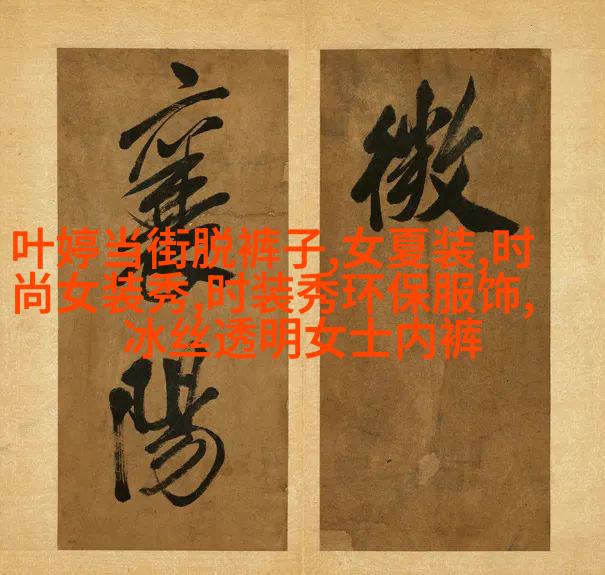 微
襄陽
叶婷当街脱裤子,女夏装,时
尚女装秀,时装秀环保服饰,
冰丝透明女士内裤